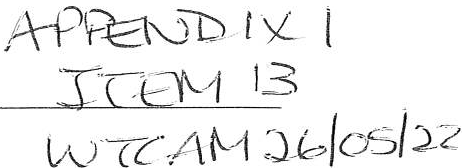 APPENDIX 1
ITEM 13
WTCAM 26/05/22